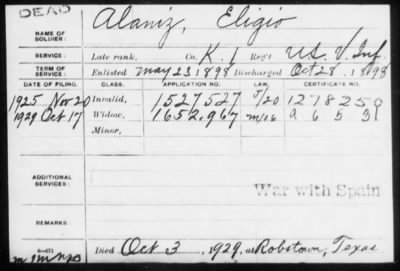 DEAD
NAME OF SOLDIER: Alaniz, Eligio
SERVICE: Late rank, Co. K. 1 Reg't U.S. V. Inf.
TERM OF SERVICE: Enlisted May 23 1898 Discharged Oct 28, 1898
DATE OF FILING. CLASS. APPLICATION NO. LAW. CERTIFICATE NO.
1925 Nov 20 Invalid, 1527,527
1929 Oct 17 Widow, 1652,967
Minor,
ADDITIONAL SERVICES:
War with Spain
REMARKS:
Died Oct 3, 1929, at Robstown, Texas